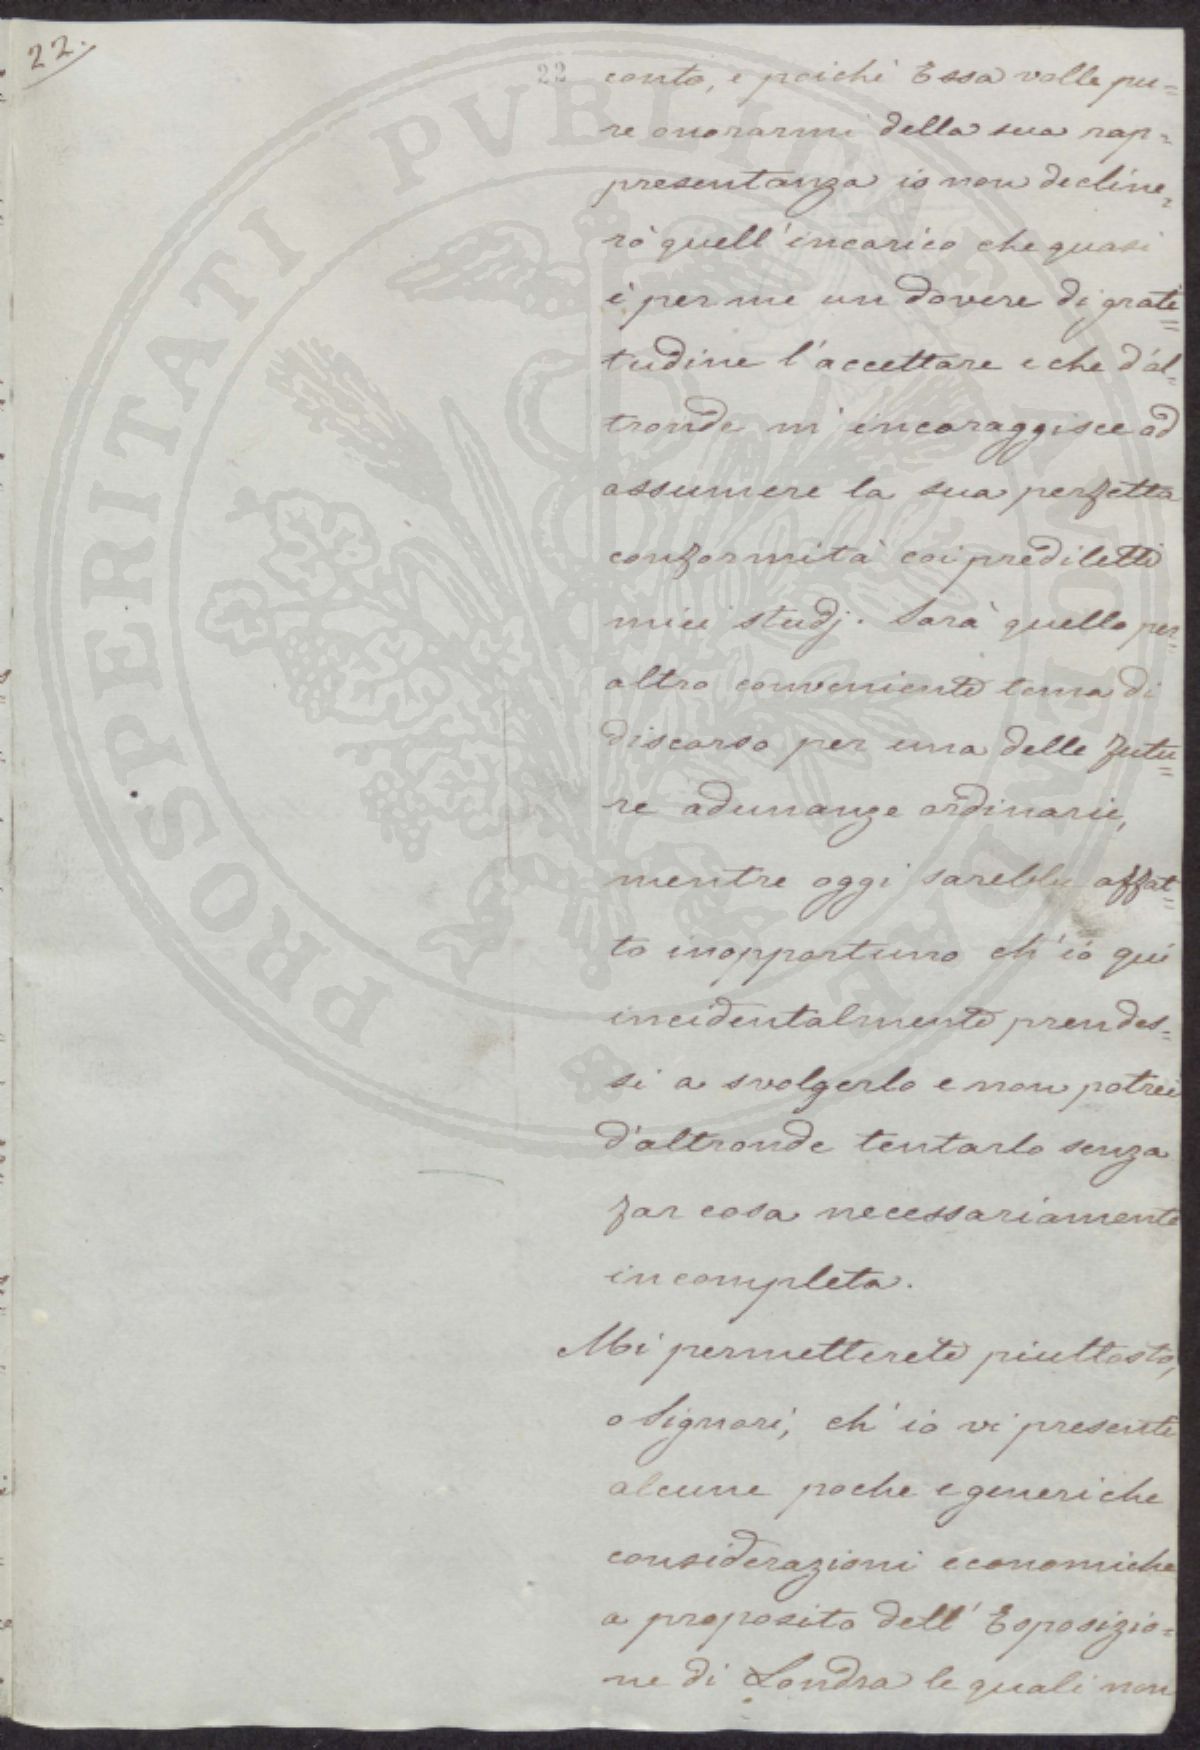 22.
22
conto, e poichè Essa volle pu=
re onorarmi della sua rap=
presentanza io non decline=
rò quell'incarico che quasi
è per me un dovere di grati=
tudine l'accettare e che d'al=
tronde m'incoraggisce ad
assumere la sua perfetta
conformità coi prediletti
miei studj. Sarà quello per=
altro conveniente tema di
discorso per una delle futu=
re adunanze ordinarie,
mentre oggi sarebbe affat=
to inopportuno ch'io qui
incidentalmente prendes=
si a svolgerlo e non potrei
d'altronde tentarlo senza
far cosa necessariamente
incompleta.
Mi permetterete piuttosto,
o Signori, ch'io vi presenti
alcune poche e generiche
considerazioni economiche
a proposito dell'Esposizio=
ne di Londra le quali non
PROSPERITATI PUBLICAE AUGENDAE